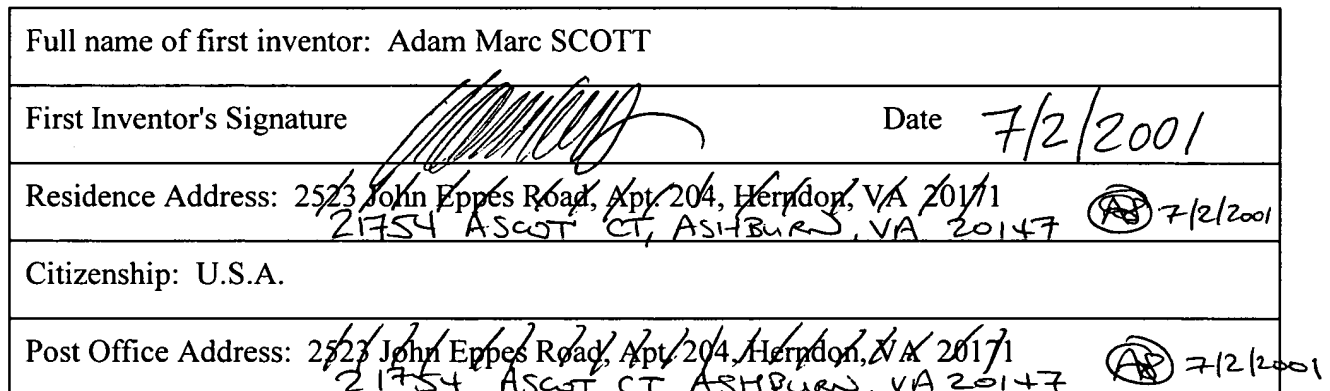 Full name of first inventor: Adam Marc SCOTT
First Inventor's Signature Date 7/2/2001
Residence Address: 2523 John Eppes Road, Apt. 204, Herndon, VA 20171
21754 ASCOT CT, ASHBURN, VA 20147 7/2/2001
Citizenship: U.S.A.
Post Office Address: 2523 John Eppes Road, Apt. 204, Herndon, VA 20171
21754 ASCOT CT ASHBURN, VA 20147 7/2/2001